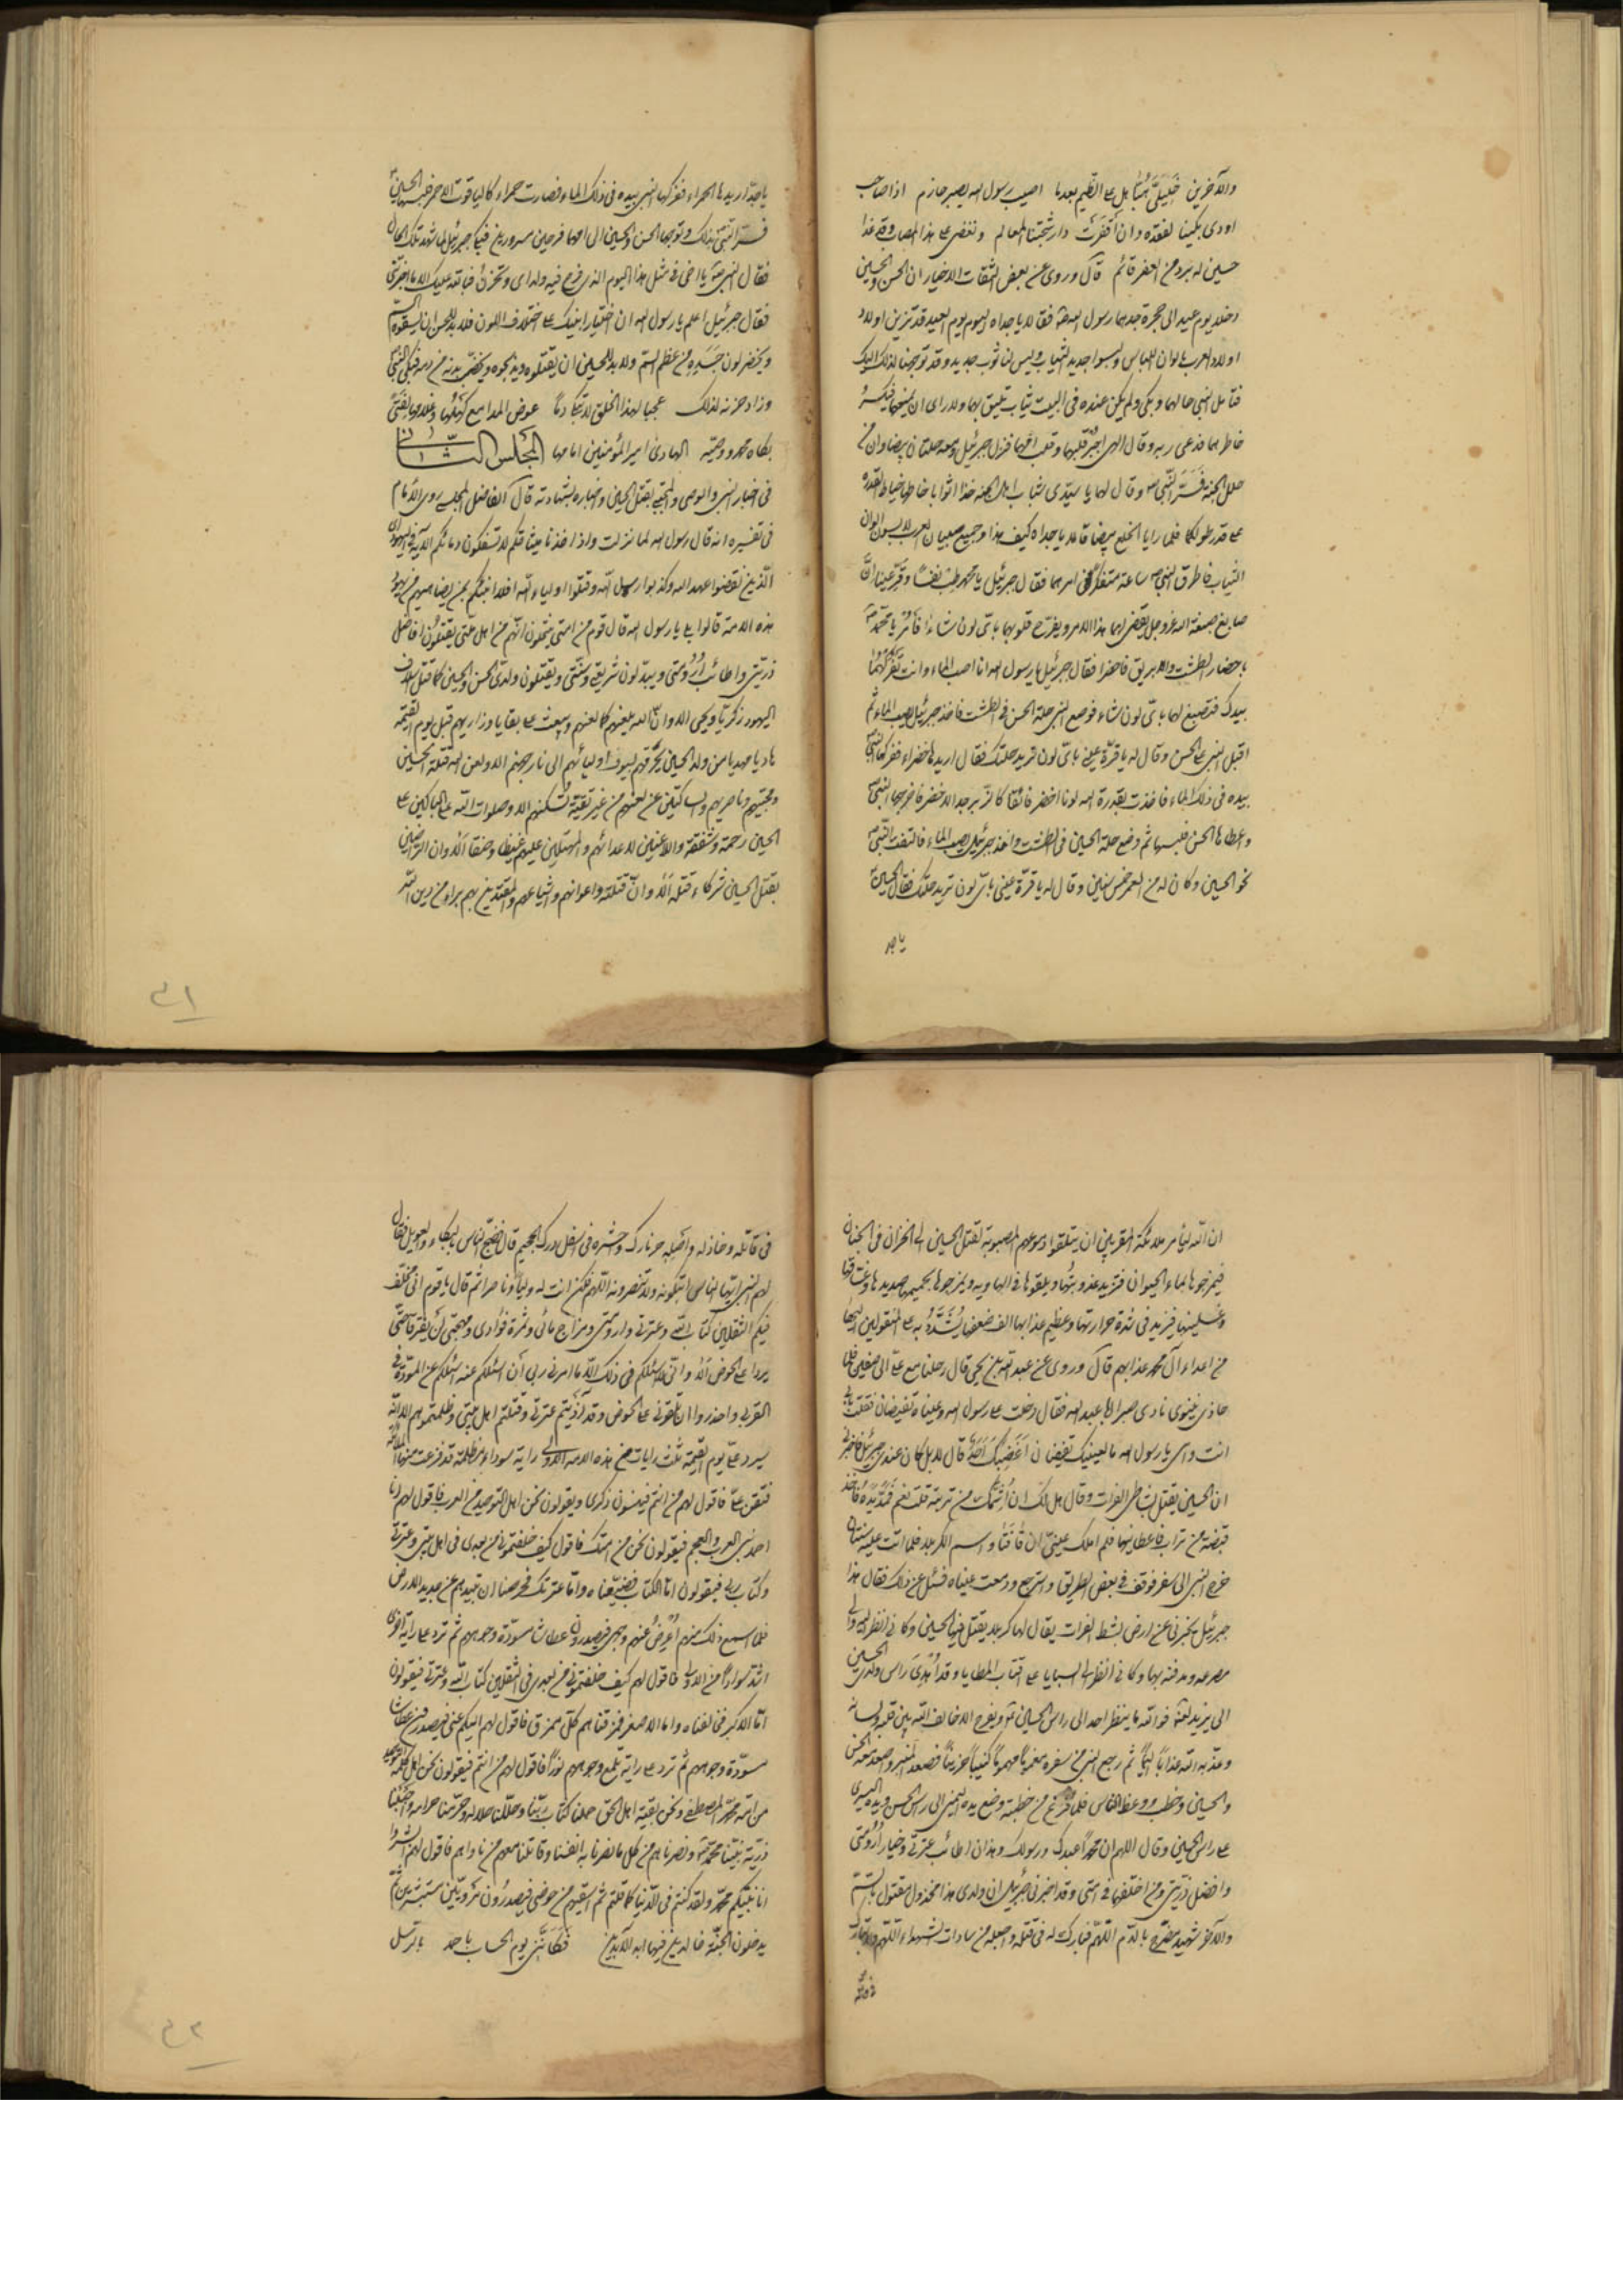 والآخرين خليليّ هُبّا بل على الظيم بعدما اصيب رسول الله يصبر حازم اذا صاحب
اودى بكينا لفقده وان أقفرت دار شجتنا المعالم ونغضى على هذا المصاب وقد غدا
حسين له برد من العفر قاتم قال وروى عن بعض الثقات الاخيار ان الحسن والحسين
دخلا يوم عيد الى حجرة جدهما رسول الله فقالا يا جداه اليوم يوم العيد وقد تزين اولاد
اولاد العرب بالوان اللباس ولبسوا جديد الثياب وليس لنا ثوب جديد وقد توجهنا لذلك اليك
فتأمل النبي حالهما وبكى ولم يكن عنده في البيت ثياب تليق بهما ولا راى ان يمنعهما فيكسر
خاطرهما فدعى ربه وقال الهى اجبر قلبهما وقلب امهما فنزل جبرئيل ومعه حلتان بيضاوان من
حلل الجنة فسرّ النبي وقال لهما يا سيّدى شباب اهل الجنة خذا اثوابا خاطها خياط القدرة
على قدر طولكما فلما رايا الخلع بيضا قالا يا جداه كيف هذا وجميع صبيان العرب لابسون الوان
الثياب فاطرق النبي ساعة متفكرا في امرهما فقال جبرئيل يا محمد طب نفسا وقرّ عينا انّ
صابغ صبغة الله عز وجل يقضى لهما هذا الامر ويفرّح قلوبهما باىّ لون شاءا فأمر يا محمد
باحضار الطشت والابريق فاحضرا فقال جبرئيل يا رسول الله انا اصب الماء وانت تفركهما
بيدك فتصبغ لهما باىّ لون شاءا فوضع النبي حلة الحسن في الطشت فاخذ جبرئيل يصب الماء ثم
اقبل النبي على الحسن وقال له يا قرّة عينى باىّ لون تريد حلتك فقال اريدها خضراء ففركها النبي
بيده فى ذلك الماء فاخذت بقدرة الله لونا اخضر فائقا كالزبرجد الاخضر فاخرجها النبي
واعطاها الحسن فلبسها ثم وضع حلة الحسين فى الطشت واخذ جبرئيل يصب الماء فالتفت النبي
نحو الحسين وكان له من العمر خمس سنين وقال له يا قرّة عينى باىّ لون تريد حلتك فقال الحسين
يا جد
يا جدّ اريدها الحمراء ففركها النبي بيده فى ذلك الماء فصارت حمراء كالياقوت الاحمر فلبسها الحسين
فسرّ النبي بذلك وتوجها الحسن والحسين الى امهما فرحين مسرورين فبكى جبرئيل لما شهد تلك الحال
فقال النبي يا اخى فى مثل هذا اليوم الذى فرح فيه ولداى وتحزن فبالله عليك الا ما اخبرتنى
فقال جبرئيل اعلم يا رسول الله ان اختيار ابنيك على اختلاف اللون فلا بد للحسن ان يسقوه السم
ويخضر لون جسده من عظم السم ولا بد للحسين ان يقتلوه ويذبحوه ويخضب بدنه من دمه فبكى النبي
وزاد حزنه لذلك عجبا لهذا الخلق لا تبكى دمًا عوض المدامع كهلها وغلامها لفتىً
بكاه محمد ووصيّه الهادى امير المؤمنين امامها المجلس الثانى
فى اخبار النبي والوصى والمجتبى بقتل الحسين واخباره بشهادته قال الفاضل المجلسى روى الامام
فى تفسيره انه قال رسول الله لما نزلت واذ اخذنا ميثاقكم لا تسفكون دمائكم الآية فى اليهود
الذين نقضوا عهد الله وكذبوا رسل الله وقتلوا اولياء الله افلا انبئكم بمن يضاهيهم من يهود
هذه الامة قالوا بلى يا رسول الله قال قوم من امتى ينتحلون انهم من اهل ملتى يقتلون افاضل
ذرّيتى واطائب اُرُومتى ويبدّلون شريعتى وسنتى ويقتلون ولدىّ الحسن والحسين كما قتل اسلاف
اليهود زكريا ويحيى الا وان الله يلعنهم كما لعنهم ويبعث على بقايا ذراريهم قبل يوم القيمة
هاديا مهديا من ولد الحسين يحرّقهم بسيوف اوليائهم الى نار جهنم الا ولعن الله قتلة الحسين
ومحبيهم وناصريهم والساكتين عن لعنهم من غير تقية تسكتهم الا وصلوات الله على الباكين على
الحسين رحمة وشفقة واللاعنين لاعدائهم والممتلين عليهم غيظا وحنقا ألا وان الراضين
بقتل الحسين شركاء قتله ألا وانّ قتلته واعوانهم واشياعهم والمقتدين بهم براء من دين الله
ان الله ليأمر ملائكته المقربين ان يتلقوا دموعهم المصبوبة لقتل الحسين الى الخزان فى الجنان
فيمزجوها بماء الحيوان فتزيد عذوبتها ويلقونها فى الهاوية ويمزجوها بحميمها وصديدها وغساقها
وغسلينها فيزيد فى شدة حرارتها وعظيم عذابها الف ضعفها يشدّد به على المنقولين اليها
من اعداء آل محمد عذابهم قال وروى عن عبد الله بن يحيى قال رحلنا مع على الى صفين فلما
حاذى نينوى نادى صبرا يا عبد الله فقال دخلت على رسول الله وعيناه تفيضان فقلت بابى
انت وامى يا رسول الله ما لعينيك تفيضان اَغضبك احد قال لا بل كان عندى جبرئيل فاخبرنى
ان الحسين يقتل بشاطئ الفرات وقال هل لك ان اُشمّك من تربته قلت نعم فمدّ يده فاخذ
قبضة من تراب فاعطانيها فلم املك عينىّ ان فاضتا واسم الارض كربلا فلما اتت عليه سنتان
خرج النبي الى سفر فوقف فى بعض الطريق واسترجع ودمعت عيناه فسئل عن ذلك فقال هذا
جبرئيل يخبرنى عن ارض بشط الفرات يقال لها كربلا يقتل فيها الحسين وكانى انظر اليه والى
مصرعه ومدفنه بها وكانى انظر الى السبايا على اقتاب المطايا وقد اُهدى راس ولدى الحسين
الى يزيد لعنه الله فوالله ما ينظر احد الى راس الحسين ويفرح الا خالف الله بين قلبه ولسانه
وعذّبه الله عذابا اليما ثم رجع النبي من سفره مغموما مهموما كئيبا حزينا فصعد المنبر واصعد معه الحسن
والحسين وخطب ووعظ الناس فلما فرغ من خطبته وضع يده اليمنى الى راس الحسن ويده اليسرى
على راس الحسين وقال اللهم ان محمدا عبدك ورسولك وهذان اطائب عترتى وخيار اُرومتى
وافضل ذرّيتى ومن اخلفهما فى امتى وقد اخبرنى جبرئيل ان ولدى هذا مخذول مقتول بالسم
والآخر شهيد مضرّج بالدم اللهم فبارك له فى قتله واجعله من سادات الشهداء اللهم ولا تبارك
فى قاتله
فى قاتله وخاذله واصله حر نارك واحشره فى اسفل درك الجحيم قال فضجّ الناس بالبكاء والعويل فقال
لهم النبي ايها الناس اتبكونه ولا تنصرونه اللهم فكن انت له وليا وناصرا ثم قال يا قوم انى مخلّف
فيكم الثقلين كتاب الله وعترتى واُرومتى ومزاج مائى وثمرة فؤادى ومهجتى لن يفترقا حتى
يردا على الحوض ألا وانى لا اسئلكم فى ذلك الا ما امرنى ربى أن اسئلكم عنه اسئلكم عن المودّة فى
القربى واحذروا ان تلقونى على الحوض وقد آذيتم عترتى وقتلتم اهل بيتى وظلمتموهم الا انه
سيرد علىّ يوم القيمة ثلث رايات من هذه الامة الاولى راية سوداء مظلمة قد فزعت منها الملائكة
فتقف علىّ فاقول لهم من انتم فينسون ذكرى ويقولون نحن اهل التوحيد من العرب فاقول لهم انا
احمد نبى العرب والعجم فيقولون نحن من امتك فاقول كيف خلفتمونى من بعدى فى اهل بيتى وعترتى
وكتاب ربى فيقولون اما الكتاب فضيّعناه واما عترتك فحرصنا ان نبيدهم عن جديد الارض
فلما اسمع ذلك منهم اُعرض عنهم وجهى فيصدرون عطاشا مسودّة وجوههم ثم ترد على راية اخرى
اشد سوادا من الاولى فاقول لهم كيف خلفتمونى من بعدى فى الثقلين كتاب الله وعترتى فيقولون
اما الاكبر فخالفناه واما الاصغر فمزقناهم كل ممزق فاقول لهم اليكم عنى فيصدرون عطاشا
مسودّة وجوههم ثم ترد على راية تلمع وجوههم نورا فاقول لهم من انتم فيقولون نحن اهل كلمة التوحيد
من امة محمد المصطفى ونحن بقية اهل الحق حملنا كتاب ربّنا وحللنا حلاله وحرّمنا حرامه واحببنا
ذرّية نبيّنا محمد ونصرناهم من كل ما نصرنا به انفسنا وقاتلنا معهم من ناواهم فاقول لهم ابشروا
انا نبيّكم محمد ولقد كنتم فى الدنيا كما قلتم ثم اسقيهم من حوضى فيصدرون مرويّين مستبشرين ثم
يدخلون الجنّة خالدين فيها ابد الآبدين فكاننى يوم الحساب باحمد بالرسل